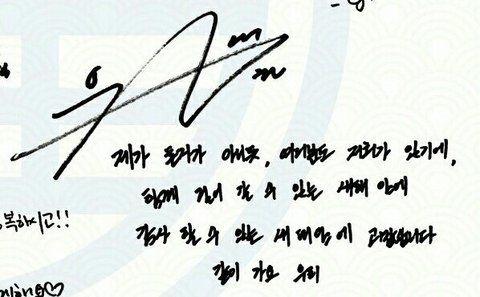 제가 혼자가 아니듯, 여러분도 저희가 있기에,
함께 걸어 갈 수 있는 새해 앞에
복하시고!!
감사 할 수 있는 새해 앞에 고맙습니다
같이 가요 우리